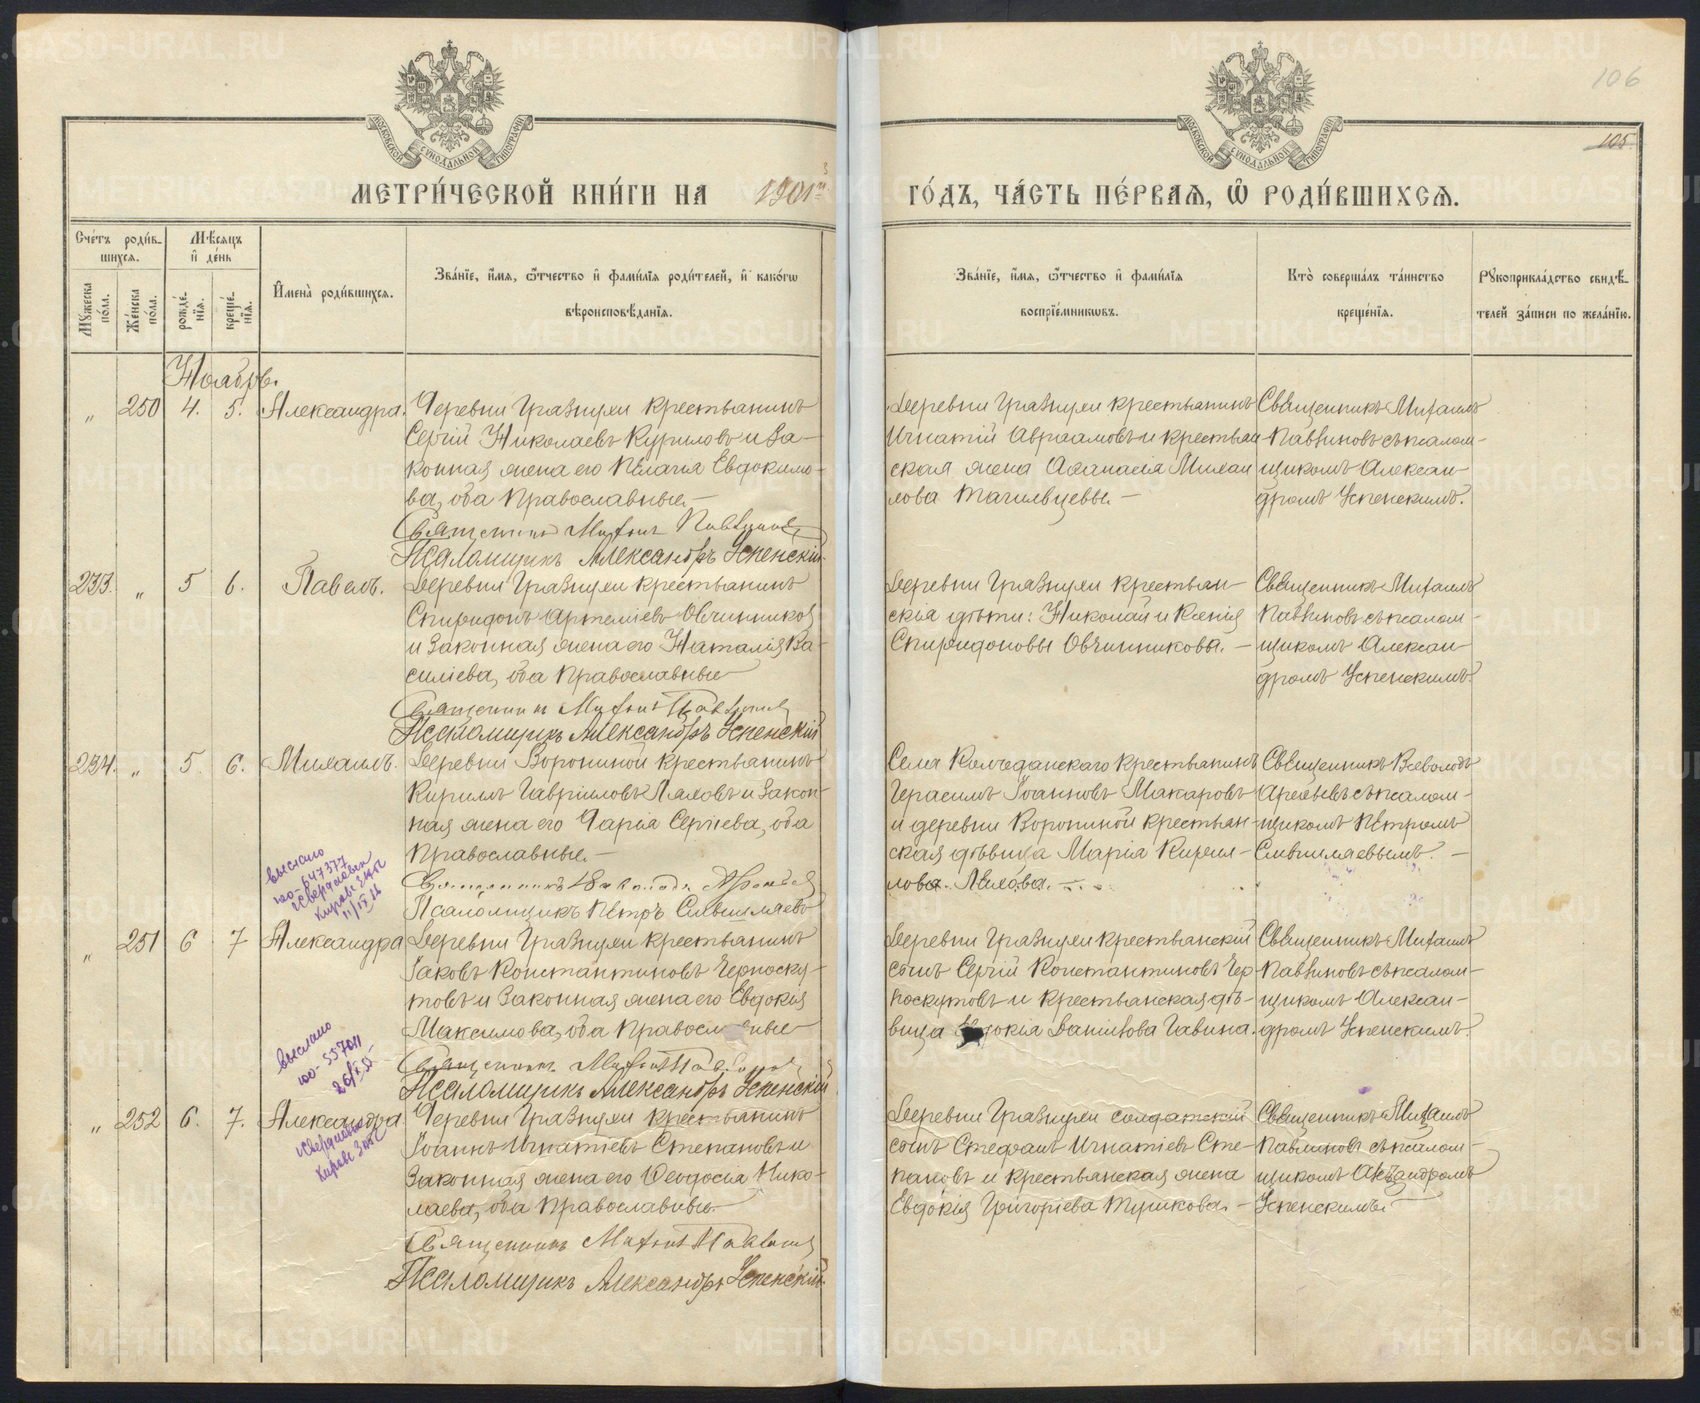 106
105
МОСКОВСКОЙ СѴНОДАЛЬНОЙ ТИПОГРАФІИ
МОСКОВСКОЙ СѴНОДАЛЬНОЙ ТИПОГРАФІИ
МЕТРИ́ЧЕСКОЙ КНИ́ГИ НА 1901й
ГО́ДЪ, ЧА́СТЬ ПЕ́РВАѦ, Ѽ РОДИ́ВШИХСѦ.
Сче́тъ роди́в-
шихсѧ.
Мꙋжеска по́ла.
Же́нска по́ла.
Мѣ́сѧцъ
и҆ де́нь
рожде́нїѧ.
креще́нїѧ.
И҆мена̀ роди́вшихсѧ.
Зва́нїе, и҆́мѧ, ѻ҆́тчество и҆ фами́лїѧ роди́телей, и҆ како́гѡ
вѣроисповѣ́данїѧ.
Зва́нїе, и҆́мѧ, ѻ҆́тчество и҆ фами́лїѧ
воспрїе́мникѡвъ.
Кто̀ соверша́лъ та́инство
креще́нїѧ.
Рꙋкоприкла́дство свидѣ́-
телей за́писи по жела́нїю.
Ноябрь.
„ 250 4. 5. Александра.
Деревни Грязнухи крестьянинъ
Сергій Николаевъ Куриловъ и за-
конная жена его Пелагія Евдокимо-
ва, оба Православные.—
Священникъ Михаилъ Павлиновъ
Псаломщикъ Александръ Успенскій.
Деревни Грязнухи крестьянинъ
Игнатій Авраамовъ и крестьян-
ская жена Аѳанасія Михаи
лова Тагильцевы.—
Священникъ Михаилъ
Павлиновъ съ псалом-
щикомъ Алексан-
дромъ Успенскимъ.
233. „ 5 6. Павелъ.
Деревни Грязнухи крестьянинъ
Спиридонъ Артеміевъ Овчинниковъ
и законная жена его Наталія Ва-
силіева, оба Православные
Священникъ Михаилъ Павлиновъ
Псаломщикъ Александръ Успенскій
Деревни Грязнухи крестьян-
скія дѣти: Николай и Ксенія
Спиридоновы Овчинниковы.—
Священникъ Михаилъ
Павлиновъ съ псалом-
щикомъ Алексан-
дромъ Успенскимъ.
234. „ 5. 6. Михаилъ.
Деревни Ворониной крестьянинъ
Кириллъ Гавріиловъ Ляховъ и закон-
ная жена его Дарія Сергіева, оба
Православные.—
Священникъ Всеволодъ Арефьевъ
Псаломщикъ Петръ
Села Колчеданскаго крестьянинъ
Герасимъ Іоанновъ Макаровъ
и деревни Ворониной крестьян-
ская дѣвица Марія Кирил-
лова Ляхова.—
Священникъ Всеволодъ
Арефьевъ съ псалом-
щикомъ Петромъ
выслано
юо-647377
„ 251 6 7 Александра
Деревни Грязнухи крестьянинъ
Іаковъ Константиновъ Черноску-
товъ и законная жена его Евдокія
Максимова, оба Правосл вные
Священникъ Михаилъ Павлиновъ
Псаломщикъ Александръ Успенскій
Деревни Грязнухи крестьянскій
сынъ Сергій Константиновъ Чер-
носкутовъ и крестьянская дѣ-
вица Евдокія Даніилова Гавина.
Священникъ Михаилъ
Павлиновъ съ псалом-
щикомъ Алексан-
дромъ Успенскимъ.
выслано
юо-557011
„ 252 6. 7. Александра
Деревни Грязнухи крестьянинъ
Іоаннъ Игнатіевъ Степановъ и
законная жена его Ѳеодосія Нико-
лаева, оба Православные.
Священникъ Михаилъ Павлиновъ
Псаломщикъ Александръ Успенскій.
Деревни Грязнухи солдатскій
сынъ Стефанъ Игнатіевъ Сте-
пановъ и крестьянская жена
Евдокія Григоріева Тушкова.—
Священникъ Михаилъ
Павлиновъ съ псалом-
щикомъ Александромъ
Успенскимъ.
METRIKI.GASO-URAL.RU